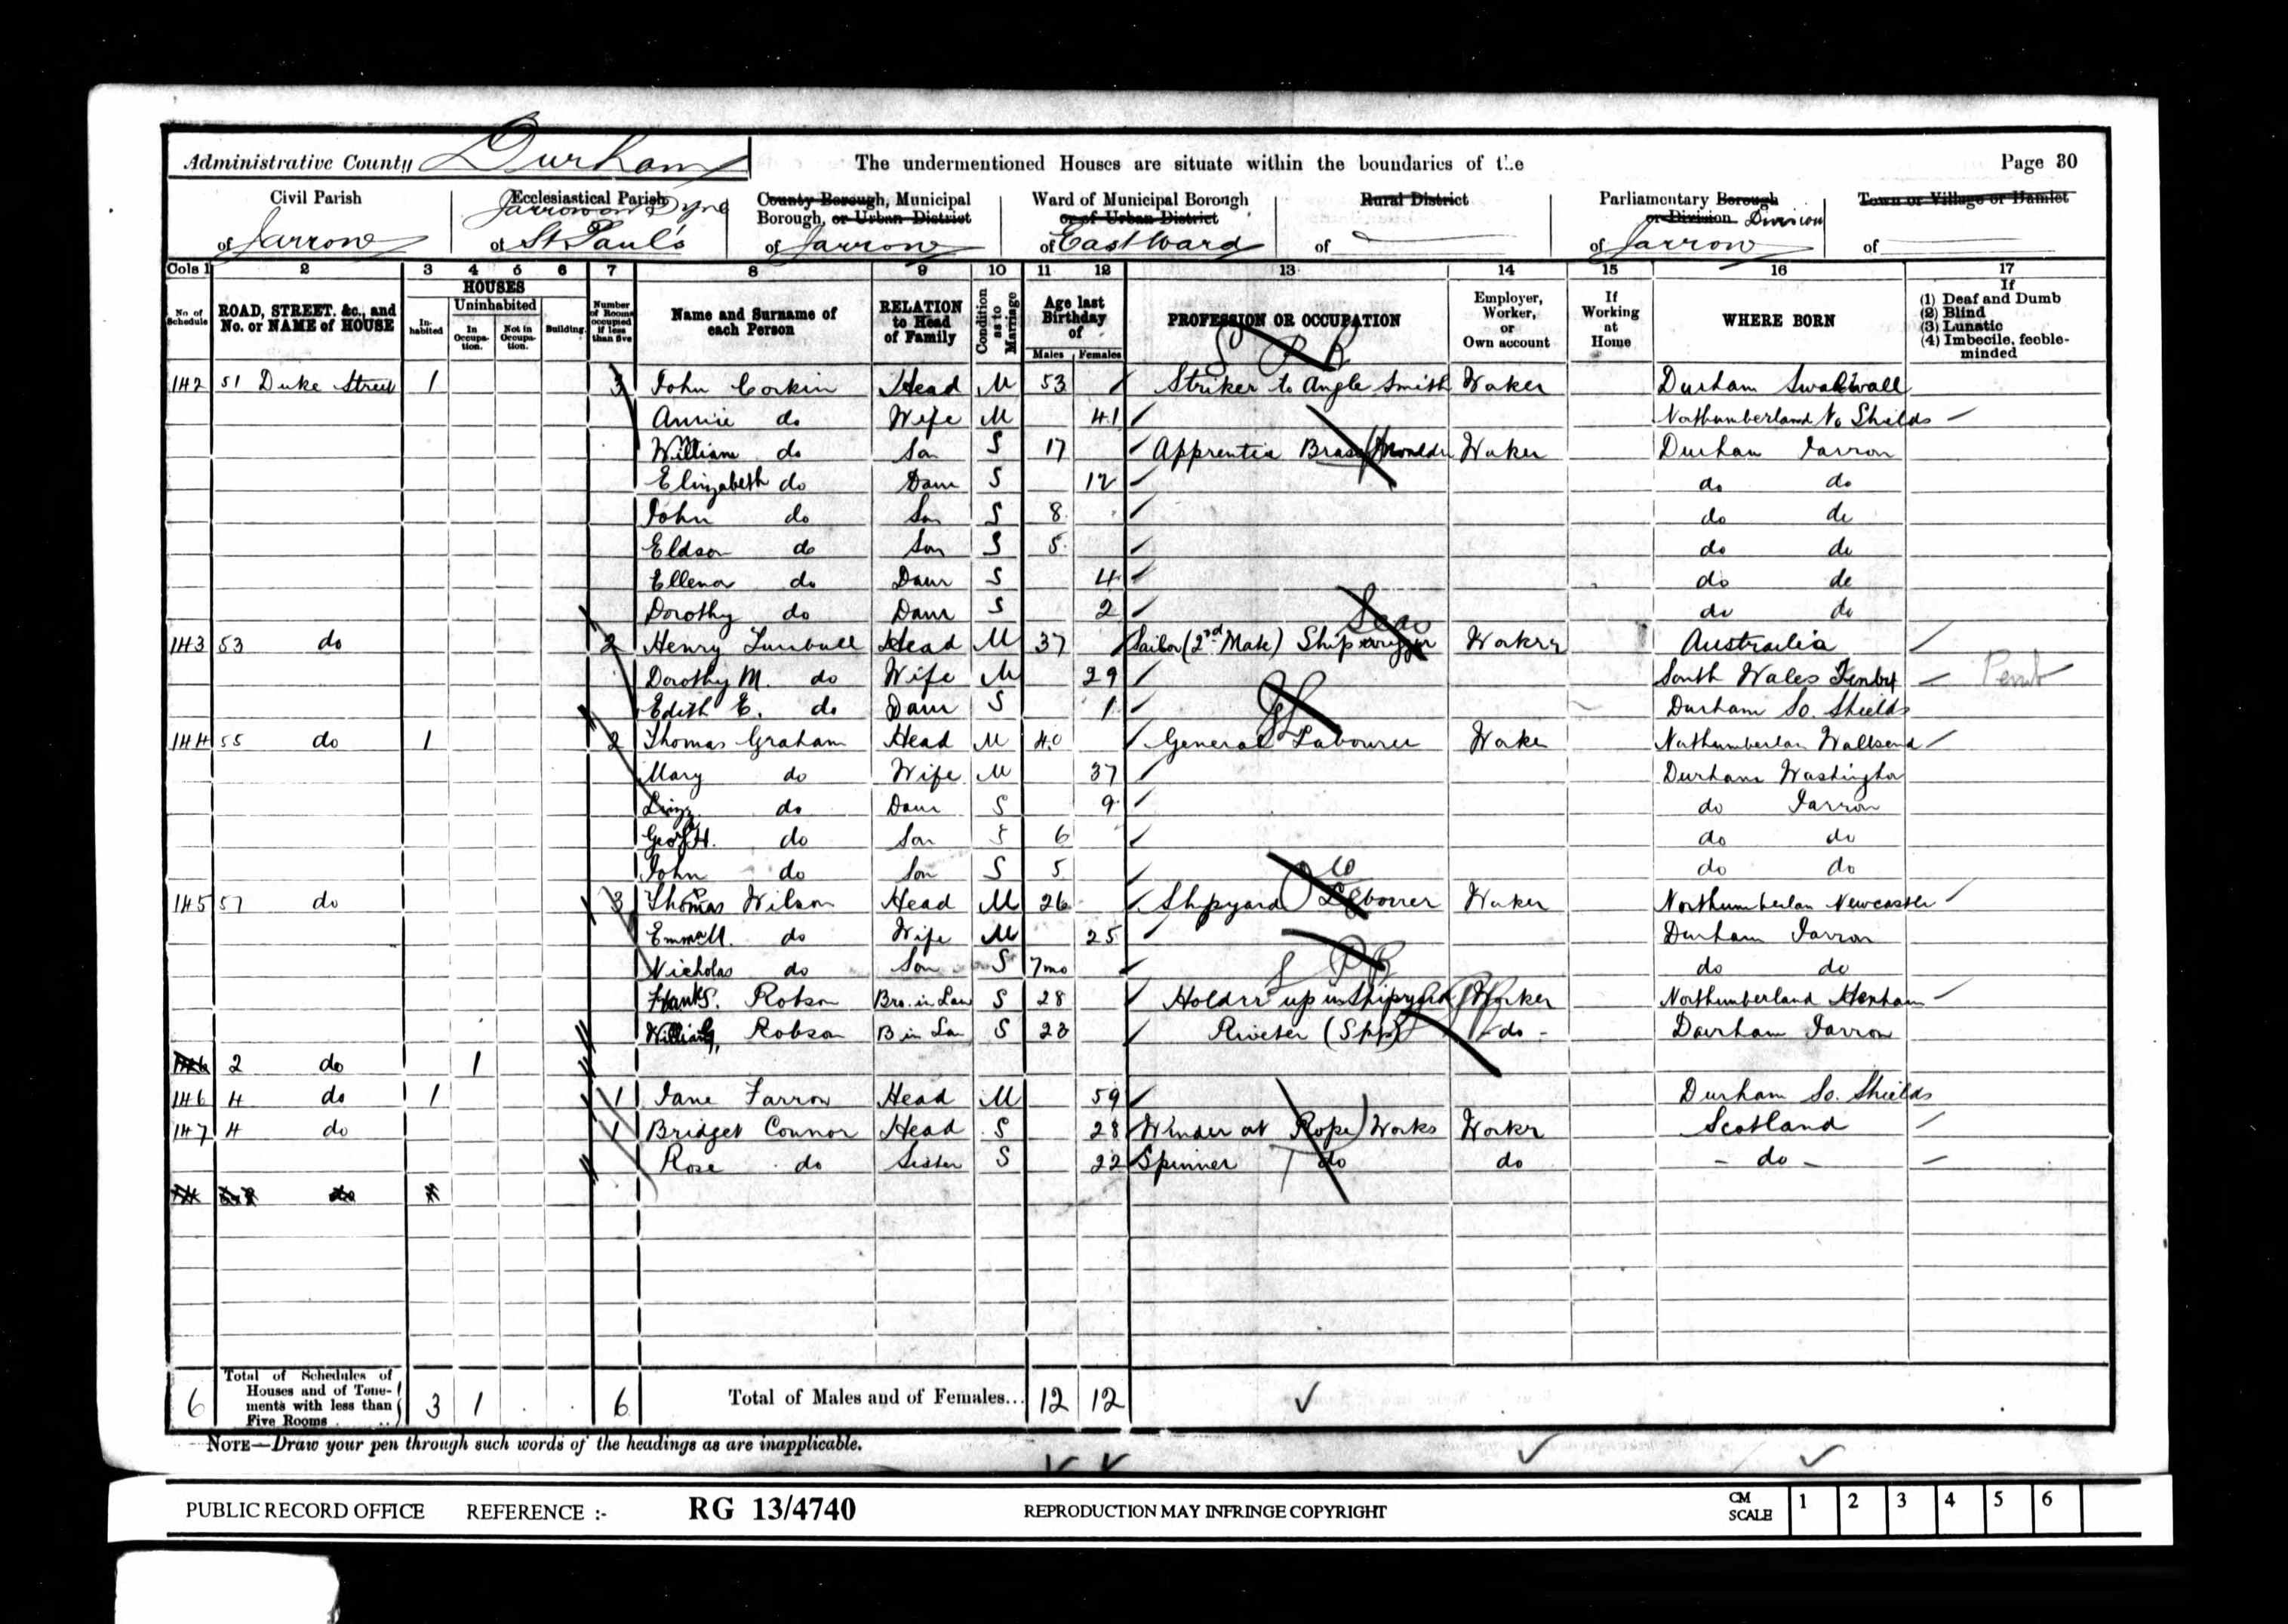 Administrative County Durham The undermentioned Houses are situate within the boundaries of the Page 30
Civil Parish of Jarrow
Ecclesiastical Parish Jarrow on Tyne of St Paul's
County Borough, Municipal Borough, or Urban District of Jarrow
Ward of Municipal Borough or of Urban District of East Ward
Rural District of
Parliamentary Borough or Division Division of Jarrow
Town or Village or Hamlet of
Cols 1 2 3 4 5 6 7 8 9 10 11 12 13 14 15 16 17
No. of Schedule
ROAD, STREET, &c., and No. or NAME of HOUSE
HOUSES
Inhabited
Uninhabited
In Occupation.
Not in Occupation.
Building.
Number of Rooms occupied if less than five
Name and Surname of each Person
RELATION to Head of Family
Condition as to Marriage
Age last Birthday of
Males Females
PROFESSION OR OCCUPATION
Employer, Worker, or Own account
If Working at Home
WHERE BORN
If (1) Deaf and Dumb (2) Blind (3) Lunatic (4) Imbecile, feeble-minded
142 51 Duke Street 1 3 John Corkin Head M 53 Striker to Angle Smith Worker Durham Swalwell
Annie do Wife M 41 Northumberland No Shields
William do Son S 17 Apprentice Brass Moulder Worker Durham Jarrow
Elizabeth do Daur S 12 do do
John do Son S 8 do do
Eldson do Son S 5 do do
Ellenor do Daur S 4 do do
Dorothy do Daur S 2 do do
143 53 do 2 Henry Turnbull Head M 37 Sailor (2nd Mate) Ship Worker Australia
Dorothy M. do Wife M 29 South Wales Tenby Pemb
Edith E. do Daur S 1 Durham So. Shields
144 55 do 1 2 Thomas Graham Head M 40 General Labourer Worker Northumberlan Wallsend
Mary do Wife M 37 Durham Washington
Lizzy do Daur S 9 do Jarrow
Geo. H. do Son S 6 do do
John do Son S 5 do do
145 57 do 3 Thomas Wilson Head M 26 Shipyard Labourer Worker Northumberlan Newcastle
Emma M. do Wife M 25 Durham Jarrow
Nicholas do Son S 7mo do do
Frank S. Robson Bro. in Law S 28 Holder up in Shipyard Worker Northumberland
William G. Robson B in La S 23 Riveter (Ship) - do - Durham Jarrow
2 do 1
146 4 do 1 1 Jane Farrow Head M 59 Durham So. Shields
147 4 do 1 Bridget Connor Head S 28 Winder at Rope Works Worker Scotland
Rose do Sister S 22 Spinner do do - do -
6 Total of Schedules of Houses and of Tenements with less than Five Rooms 3 1 6 Total of Males and of Females... 12 12
NOTE—Draw your pen through such words of the headings as are inapplicable.
PUBLIC RECORD OFFICE REFERENCE :- RG 13/4740 REPRODUCTION MAY INFRINGE COPYRIGHT CM SCALE 1 2 3 4 5 6